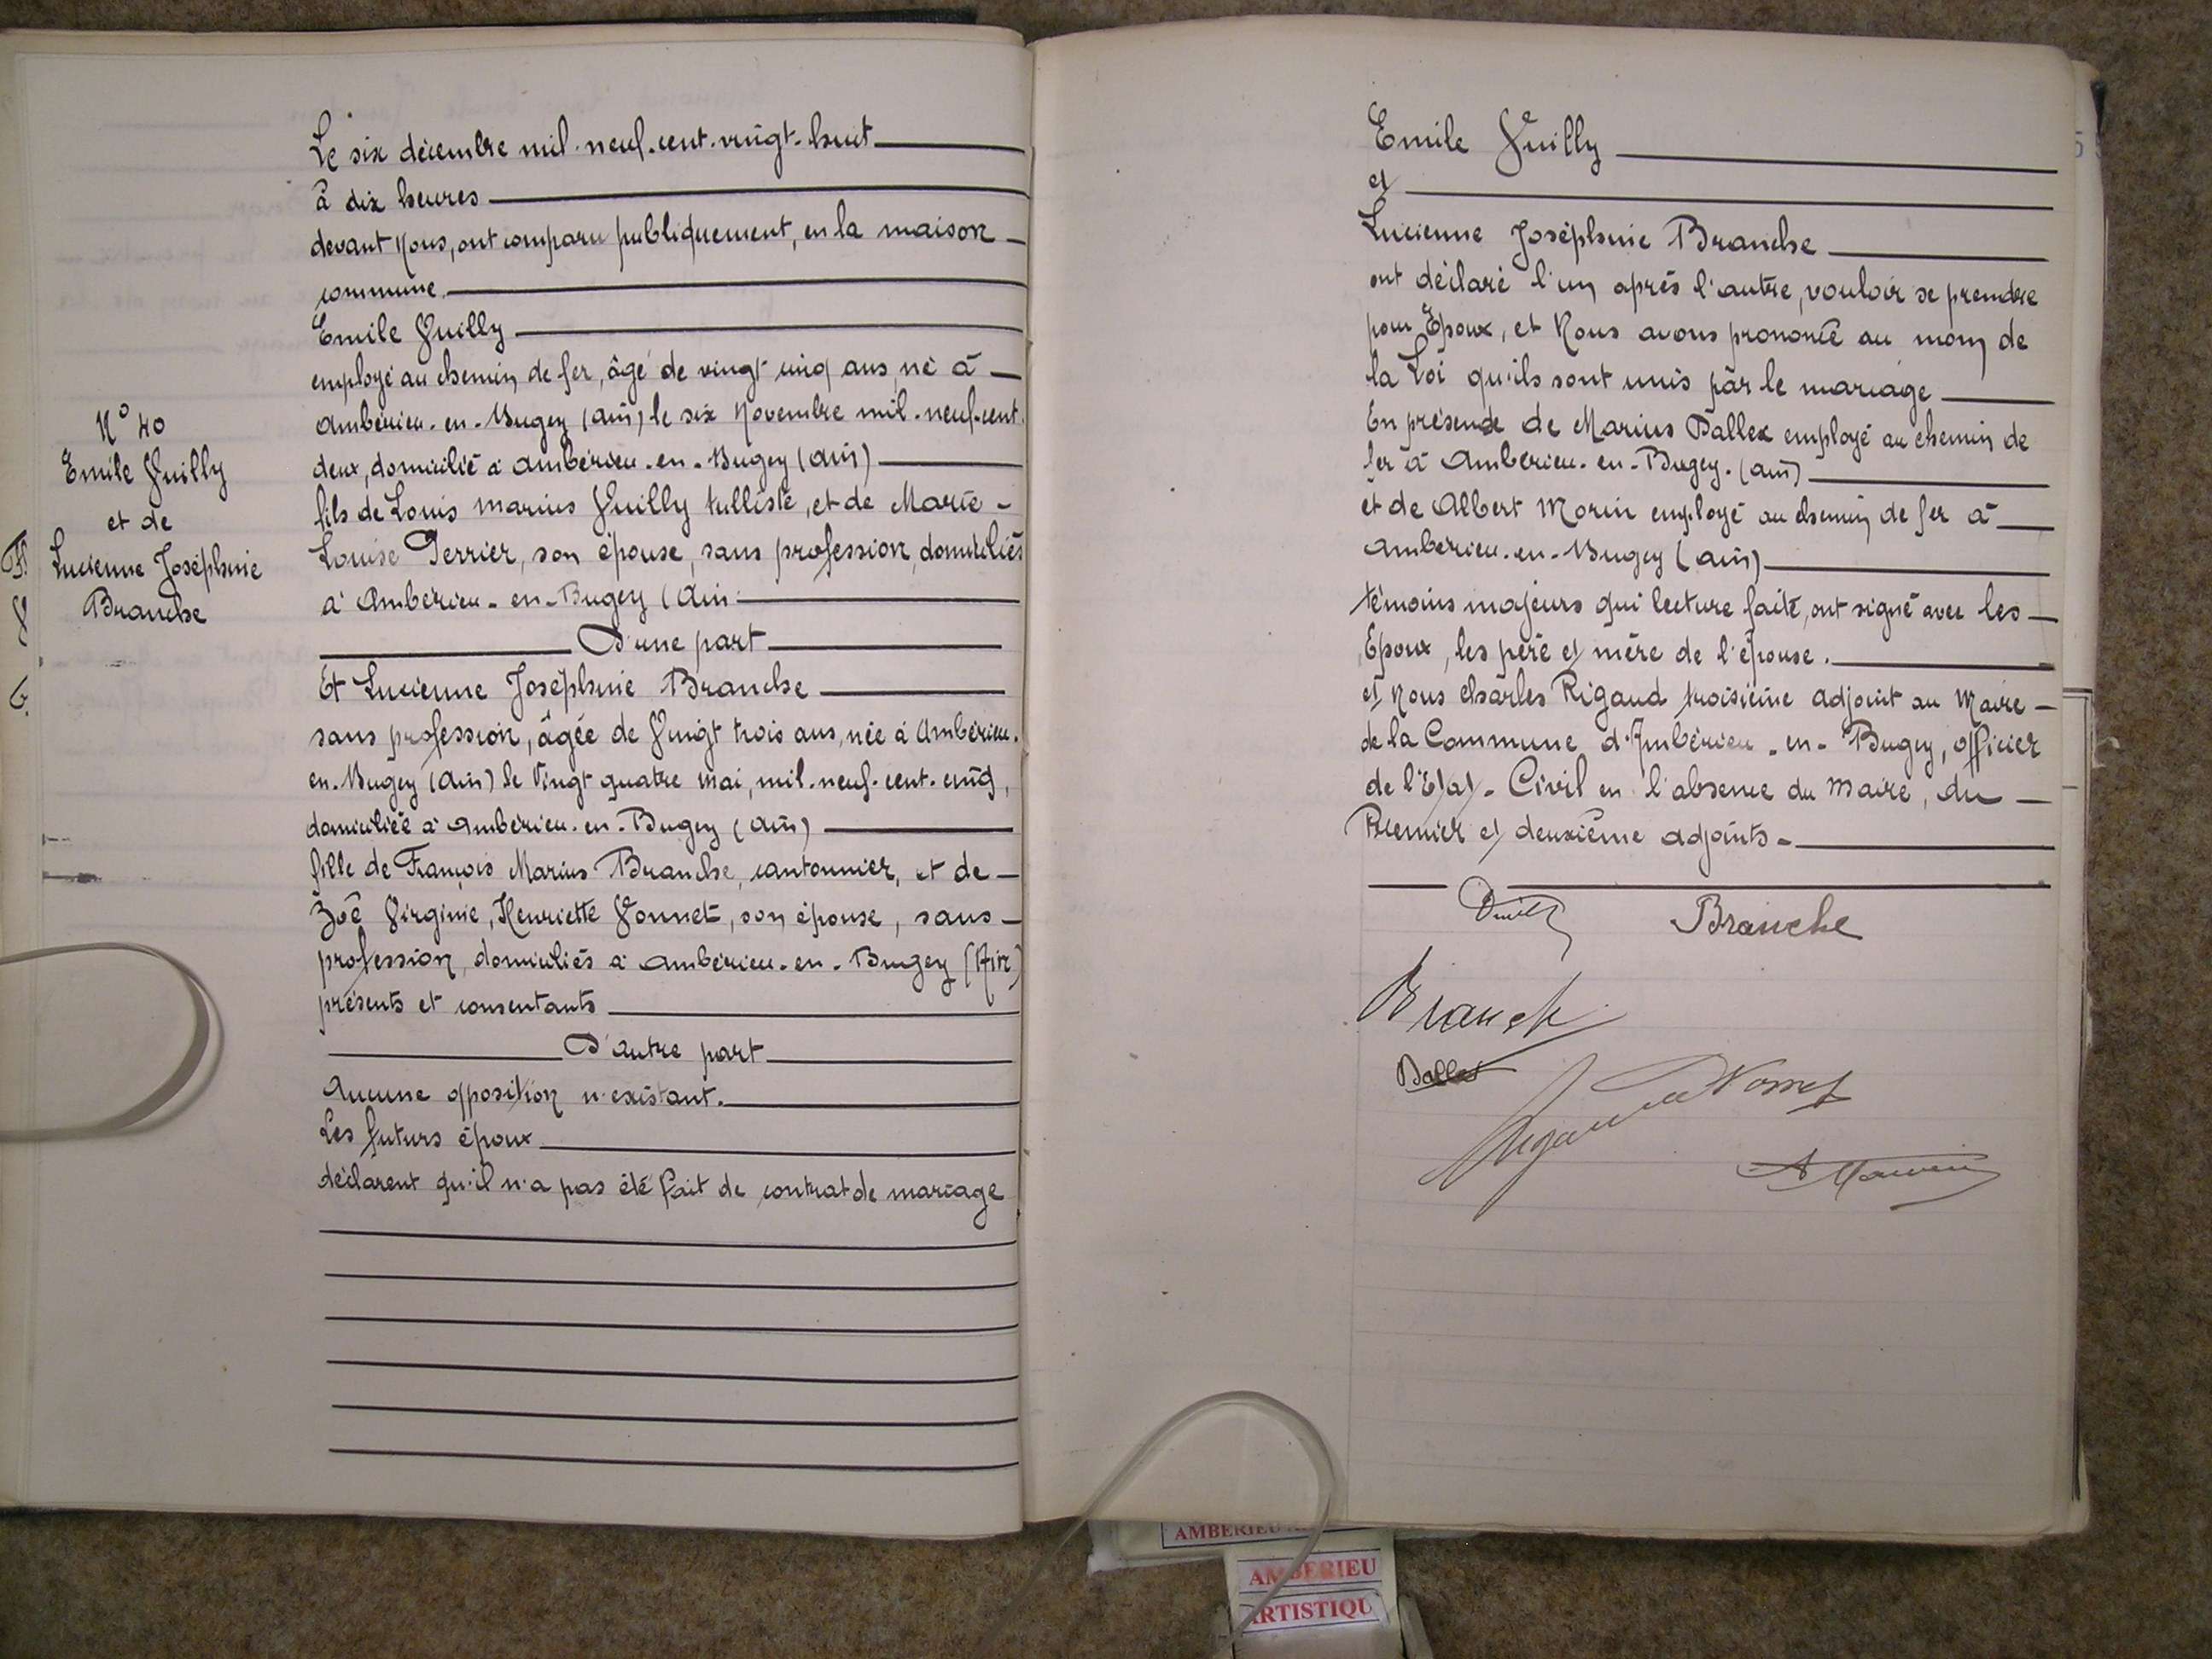 Le six décembre mil-neuf-cent-vingt-huit
à dix heures
devant Nous, ont comparu publiquement, en la maison
commune
Emile Vuilly
employé au chemin de fer, âgé de vingt-cinq ans, né à
Ambérieu-en-Bugey (Ain) le six Novembre mil-neuf-cent-
deux, domicilié à Ambérieu-en-Bugey (Ain)
fils de Louis Marius Vuilly tulliste, et de Marie-
Louise Perrier, son épouse, sans profession, domiciliés
à Ambérieu-en-Bugey (Ain
D'une part
Et Lucienne Joséphine Branche
sans profession, âgée de Vingt trois ans, née à Ambérieu-
en-Bugey (Ain) le Vingt quatre Mai, mil-neuf-cent-cinq,
domiciliée à Ambérieu-en-Bugey (Ain)
fille de François Marius Branche, cantonnier, et de
Zoé Virginie, Henriette Vonnet, son épouse, sans
profession, domiciliés à Ambérieu-en-Bugey (Ain)
présents et consentants
D'autre part
Aucune opposition n'existant.
Les futurs époux
déclarent qu'il n'a pas été fait de contrat de mariage
N° 40
Emile Vuilly
et de
Lucienne Joséphine
Branche
Emile Vuilly
et
Lucienne Joséphine Branche
ont déclaré l'un après l'autre, vouloir se prendre
pour Epoux, et Nous avons prononcé au nom de
la Loi qu'ils sont unis par le mariage
En présence de Marius Dallex employé au chemin de
fer à Ambérieu-en-Bugey-(Ain)
et de Albert Morin employé au chemin de fer à
Ambérieu-en-Bugey (Ain)
témoins majeurs qui lecture faite, ont signé avec les
Epoux, les père et mère de l'épouse.
et Nous Charles Rigaud troisième adjoint au Maire
de la Commune d'Ambérieu-en-Bugey, officier
de l'Etat-Civil en l'absence du Maire, du
Premier et deuxième adjoints-
Vuilly Branche
Branche
Dallex
Rigaud Vonnet
A Morin
AMBERIEU
AMBERIEU
ARTISTIQU